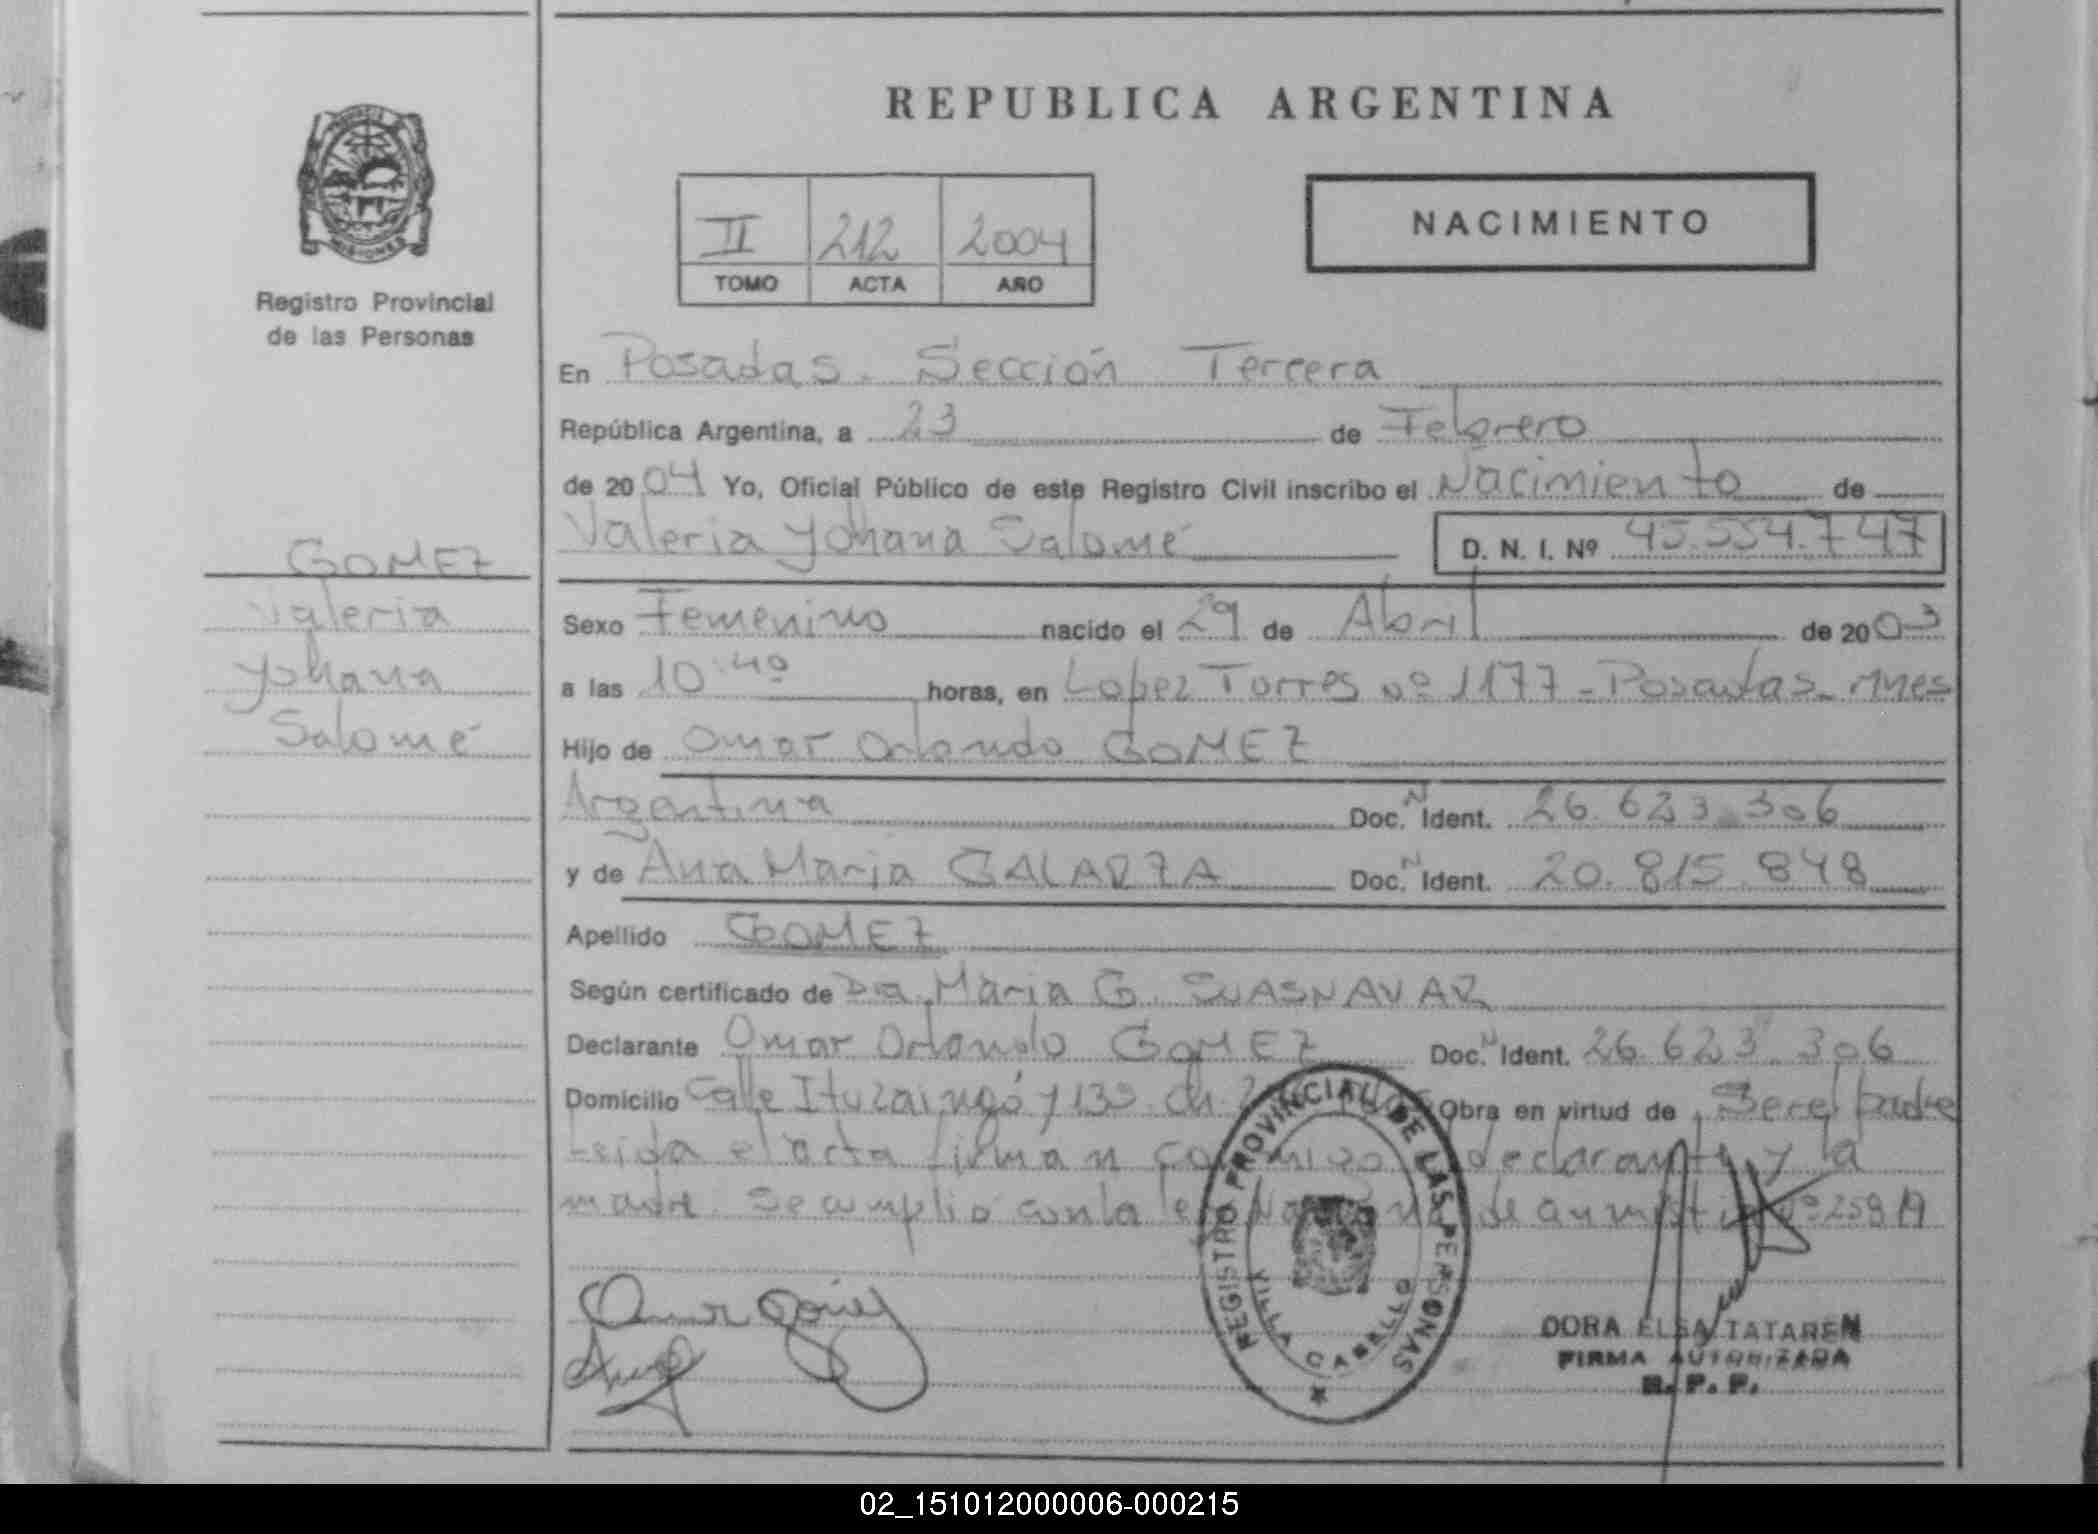 REPUBLICA ARGENTINA
PROVINCIA DE MISIONES
Registro Provincial
de las Personas
II 212 2004
TOMO ACTA AÑO
NACIMIENTO
En Posadas. Sección Tercera
República Argentina, a 23 de Febrero
de 2004 Yo, Oficial Público de este Registro Civil inscribo el Nacimiento de
Valeria Yohana Salomé D. N. I. Nº 45.554.747
GOMEZ
Valeria
Yohana
Salomé
Sexo Femenino nacido el 29 de Abril de 2003
a las 10:40 horas, en Lopez Torres nº 1177 - Posadas - Mnes
Hijo de Omar Orlando GOMEZ
Argentina Doc. N Ident. 26.623.306
y de Ana Maria GALARZA Doc. N Ident. 20.815.848
Apellido GOMEZ
Según certificado de Dra. Maria G. SUASNAVAR
Declarante Omar Orlando GOMEZ Doc. N Ident. 26.623.306
Domicilio Calle Ituzaingó y 133 Ch. Obra en virtud de Ser el padre
Leida el acta firman conmigo declarante y la
madre. Se cumplió con la ley de amnistia nº 25819
Omar Gomez
REGISTRO PROVINCIAL DE LAS PERSONAS
VILLA CABELLO
DORA ELSA TATAREN
FIRMA AUTORIZADA
R. P. P.
02_151012000006-000215